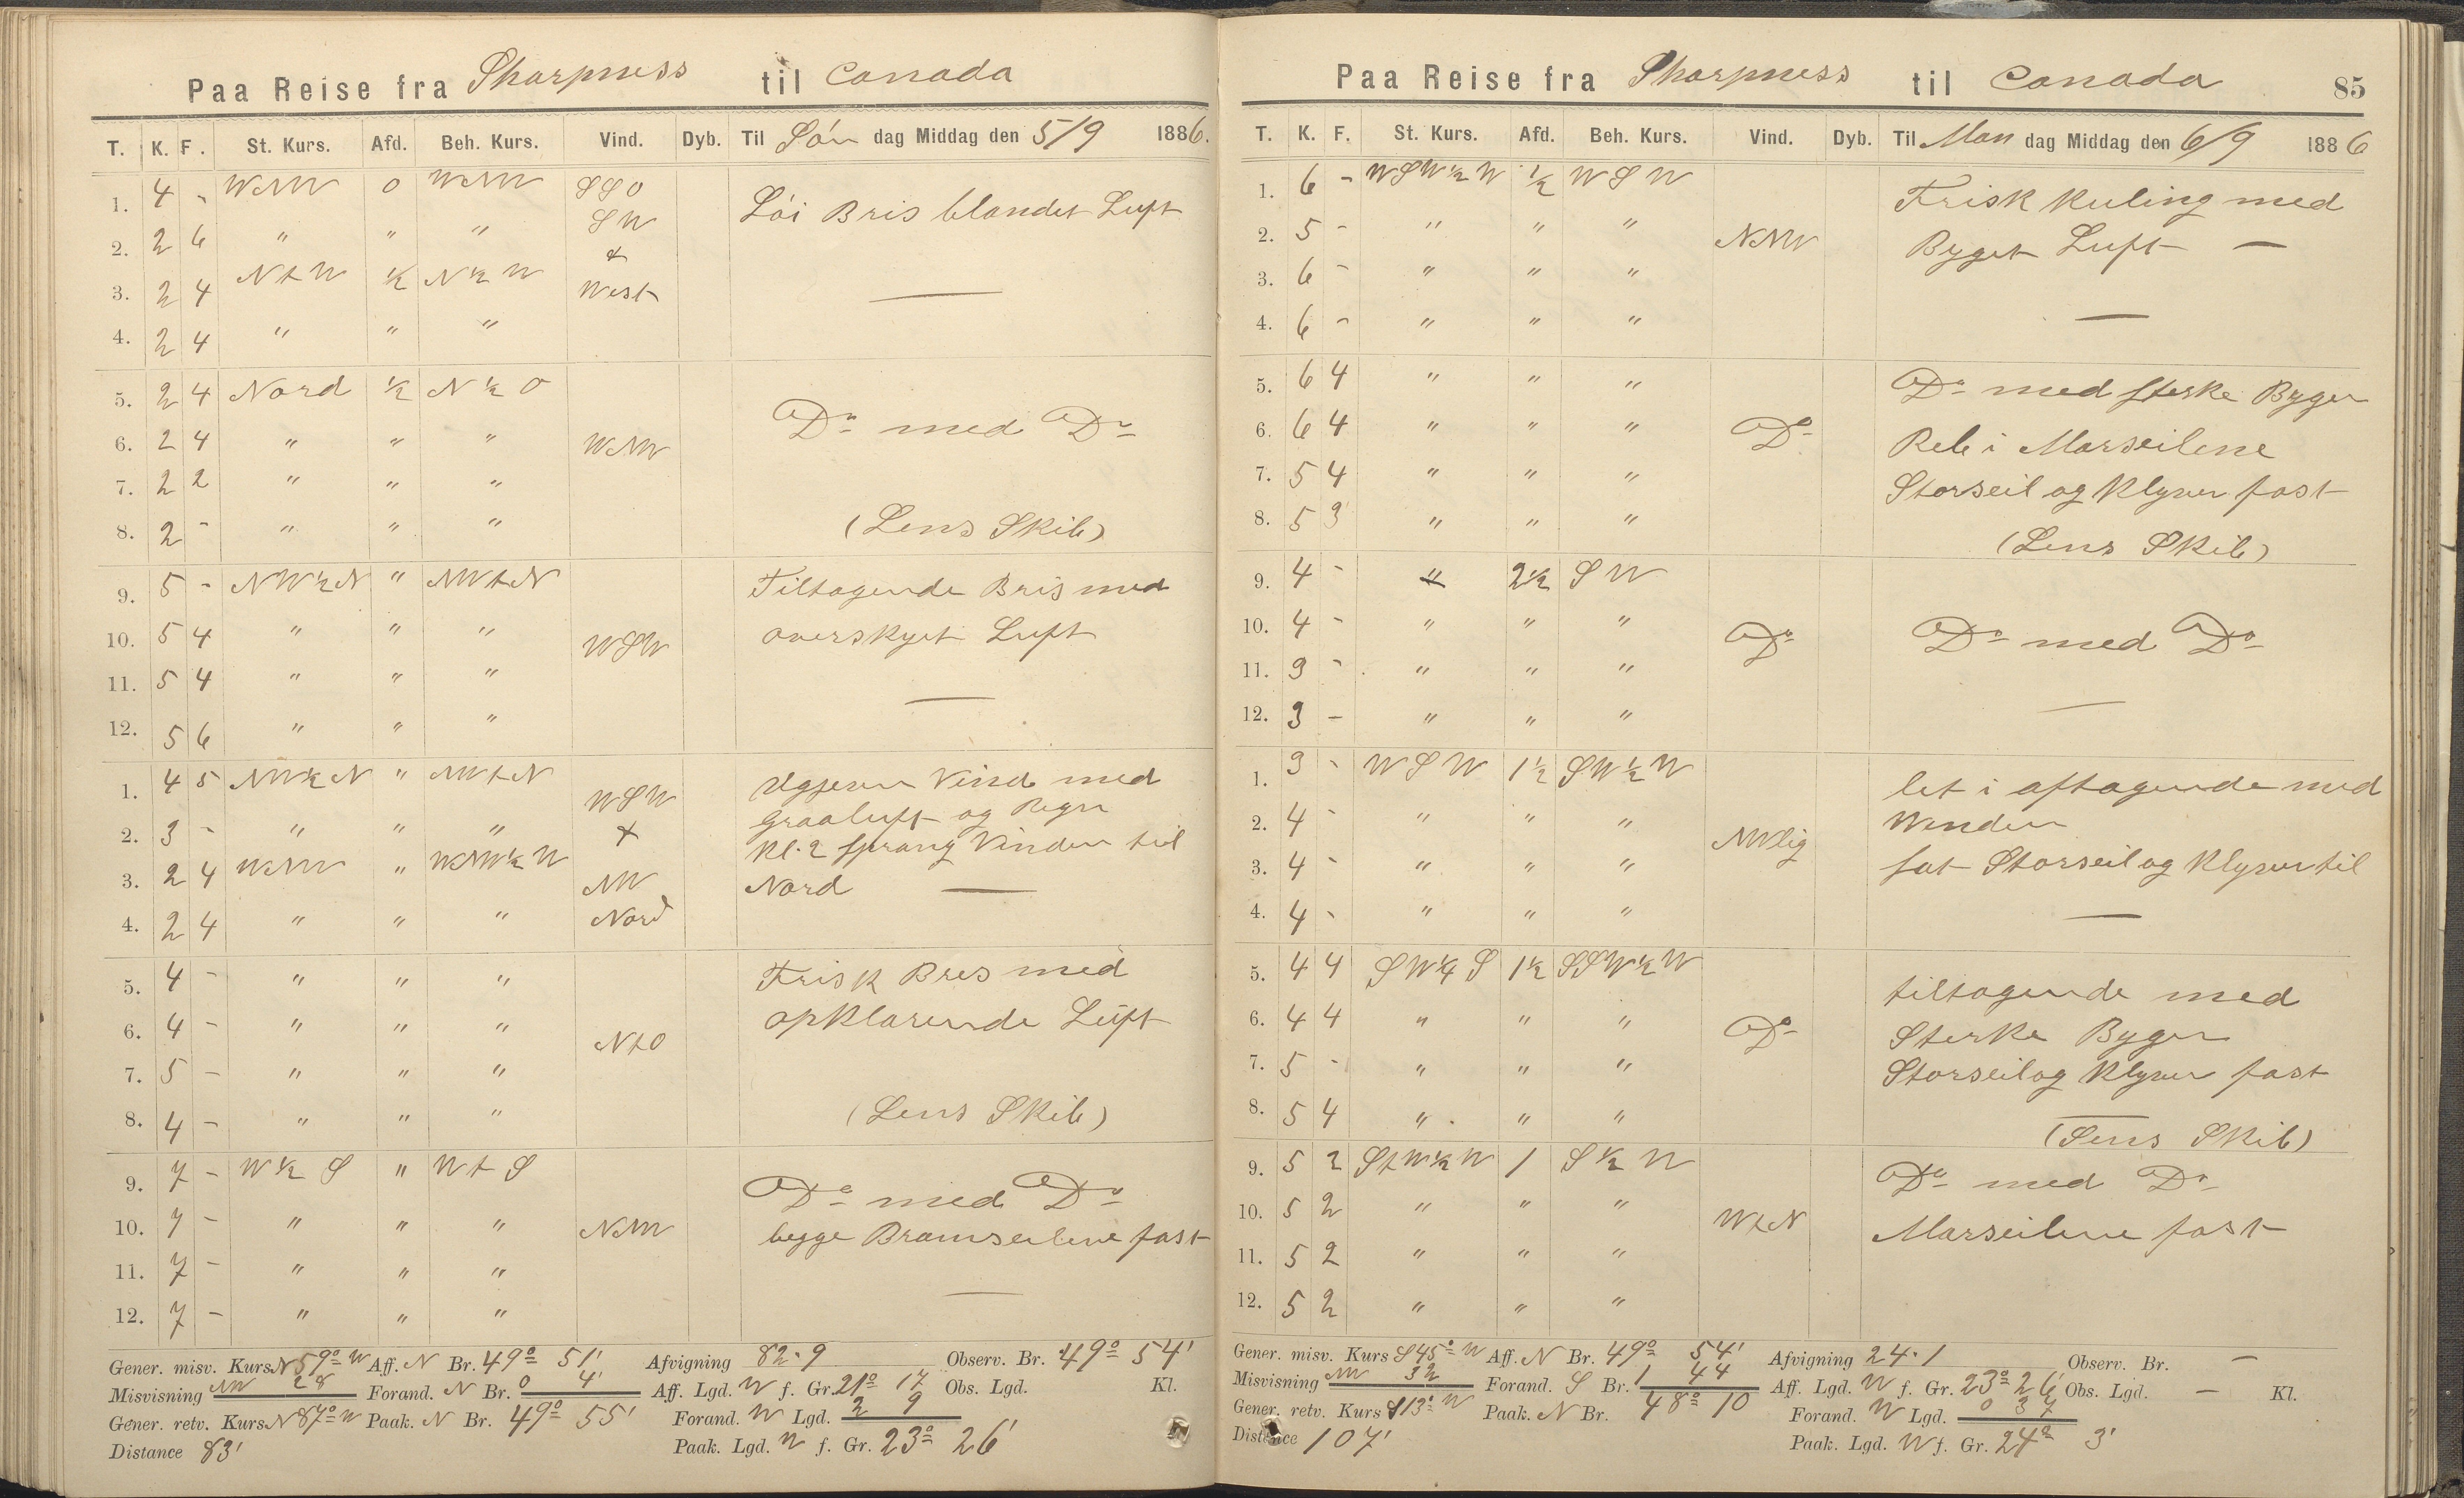 Paa Reise fra Sharpness til Canada
T. K. F. St. Kurs. Afd. Beh. Kurs. Vind. Dyb. Til Søn dag Middag den 5/9 1886.
1. 4 - WNW 0 WNW SSO
Løi Bris blandet Luft
SW
2. 2 6 " " "
&
3. 2 4 NtW ½ N½W West
4. 2 4 " " "
5. 2 4 Nord ½ N½O
Do med Do
6. 2 4 " " " WNW
7. 2 2 " " "
8. 2 - " " " (Lens Skib)
9. 5 - NW½N " NWtN Tiltagende Bris med
10. 5 4 " " " WSW overskyet Luft
11. 5 4 " " "
12. 5 6 " " "
1. 4 5 NW½N " NWtN WSW Ugjevn Vind med
Graaluft og Regn
2. 3 - " " " + Kl. 2 sprang Vinden til
3. 2 4 WNW " WNW½W NW Nord
4. 2 4 " " " Nord
5. 4 - " " " Frisk Bris med
6. 4 - " " " NtO opklarende Luft
7. 5 - " " "
8. 4 - " " " (Lens Skib)
9. 7 - W½S " WtS Do med Do
10. 7 - " " " NNW begge Bramseilene fast
11. 7 - " " "
12. 7 - " " "
Gener. misv. Kurs N59°W Aff. N Br. 49° 51' Afvigning 82.9 Observ. Br. 49° 54'
Misvisning NW 28 Forand. N Br. 0 4' Aff. Lgd. W f. Gr. 21° 17 Obs. Lgd. Kl.
Gener. retv. Kurs N87°W Paak. N Br. 49° 55' Forand. W Lgd. 2 9
Distance 83' Paak. Lgd. W f. Gr. 23° 26'
Paa Reise fra Sharpness til Canada 85
T. K. F. St. Kurs. Afd. Beh. Kurs. Vind. Dyb. Til Man dag Middag den 6/9 1886
1. 6 - WSW½W ½ WSW Frisk Kuling med
2. 5 - " " " NNW Byget Luft —
3. 6 - " " "
4. 6 - " " "
5. 6 4 " " " Do med sterke Byger
6. 6 4 " " " Do Reb i Marseilene
7. 5 4 " " " Storseil og Klyver fast
8. 5 3 " " " (Lens Skib)
9. 4 - " 2½ SW
10. 4 - " " " Do Do med Do
11. 3 - " " "
12. 3 - " " "
1. 3 - WSW 1½ SW½W let i aftagende med
2. 4 - " " " NWlig Winden
3. 4 - " " " sat Storseil og Klyver til
4. 4 - " " "
5. 4 4 SW¼S 1½ SSW½W tiltagende med
6. 4 4 " " " Do Sterke Byger
7. 5 - " " " Storseil og Klyver fast
8. 5 4 " " " (Lens Skib)
9. 5 2 StW½W 1 S½W Do med Do
10. 5 2 " " " WtN Marseilene fast
11. 5 2 " " "
12. 5 2 " " "
Gener. misv. Kurs S45°W Aff. N Br. 49° 54' Afvigning 24.1 Observ. Br. —
Misvisning NW 32 Forand. S Br. 1 44 Aff. Lgd. W f. Gr. 23° 26' Obs. Lgd. — Kl.
Gener. retv. Kurs S13°W Paak. N Br. 48° 10 Forand. W Lgd. 0 37
Distance 107' Paak. Lgd. W f. Gr. 24° 3'